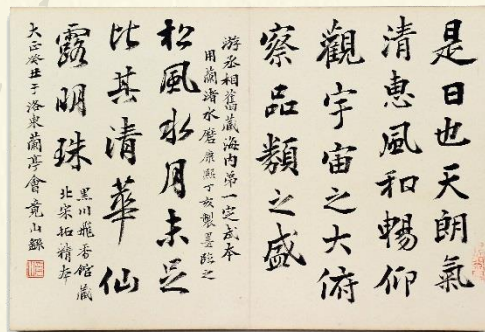 是日也天朗氣
清惠風和暢仰
觀宇宙之大俯
察品類之盛
游丞相舊藏海内第一定武本
用蘭渚水磨康熙丁亥製墨臨之
松風水月未足
比其清華仙
露明珠
黑川飛香館藏
北宋拓精本
大正癸丑于洛東蘭亭會竟山錄